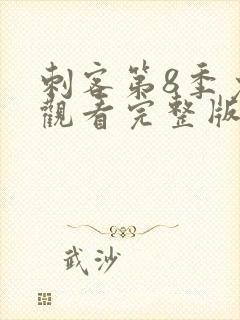 刺客第8季
觀看完整版
武沙